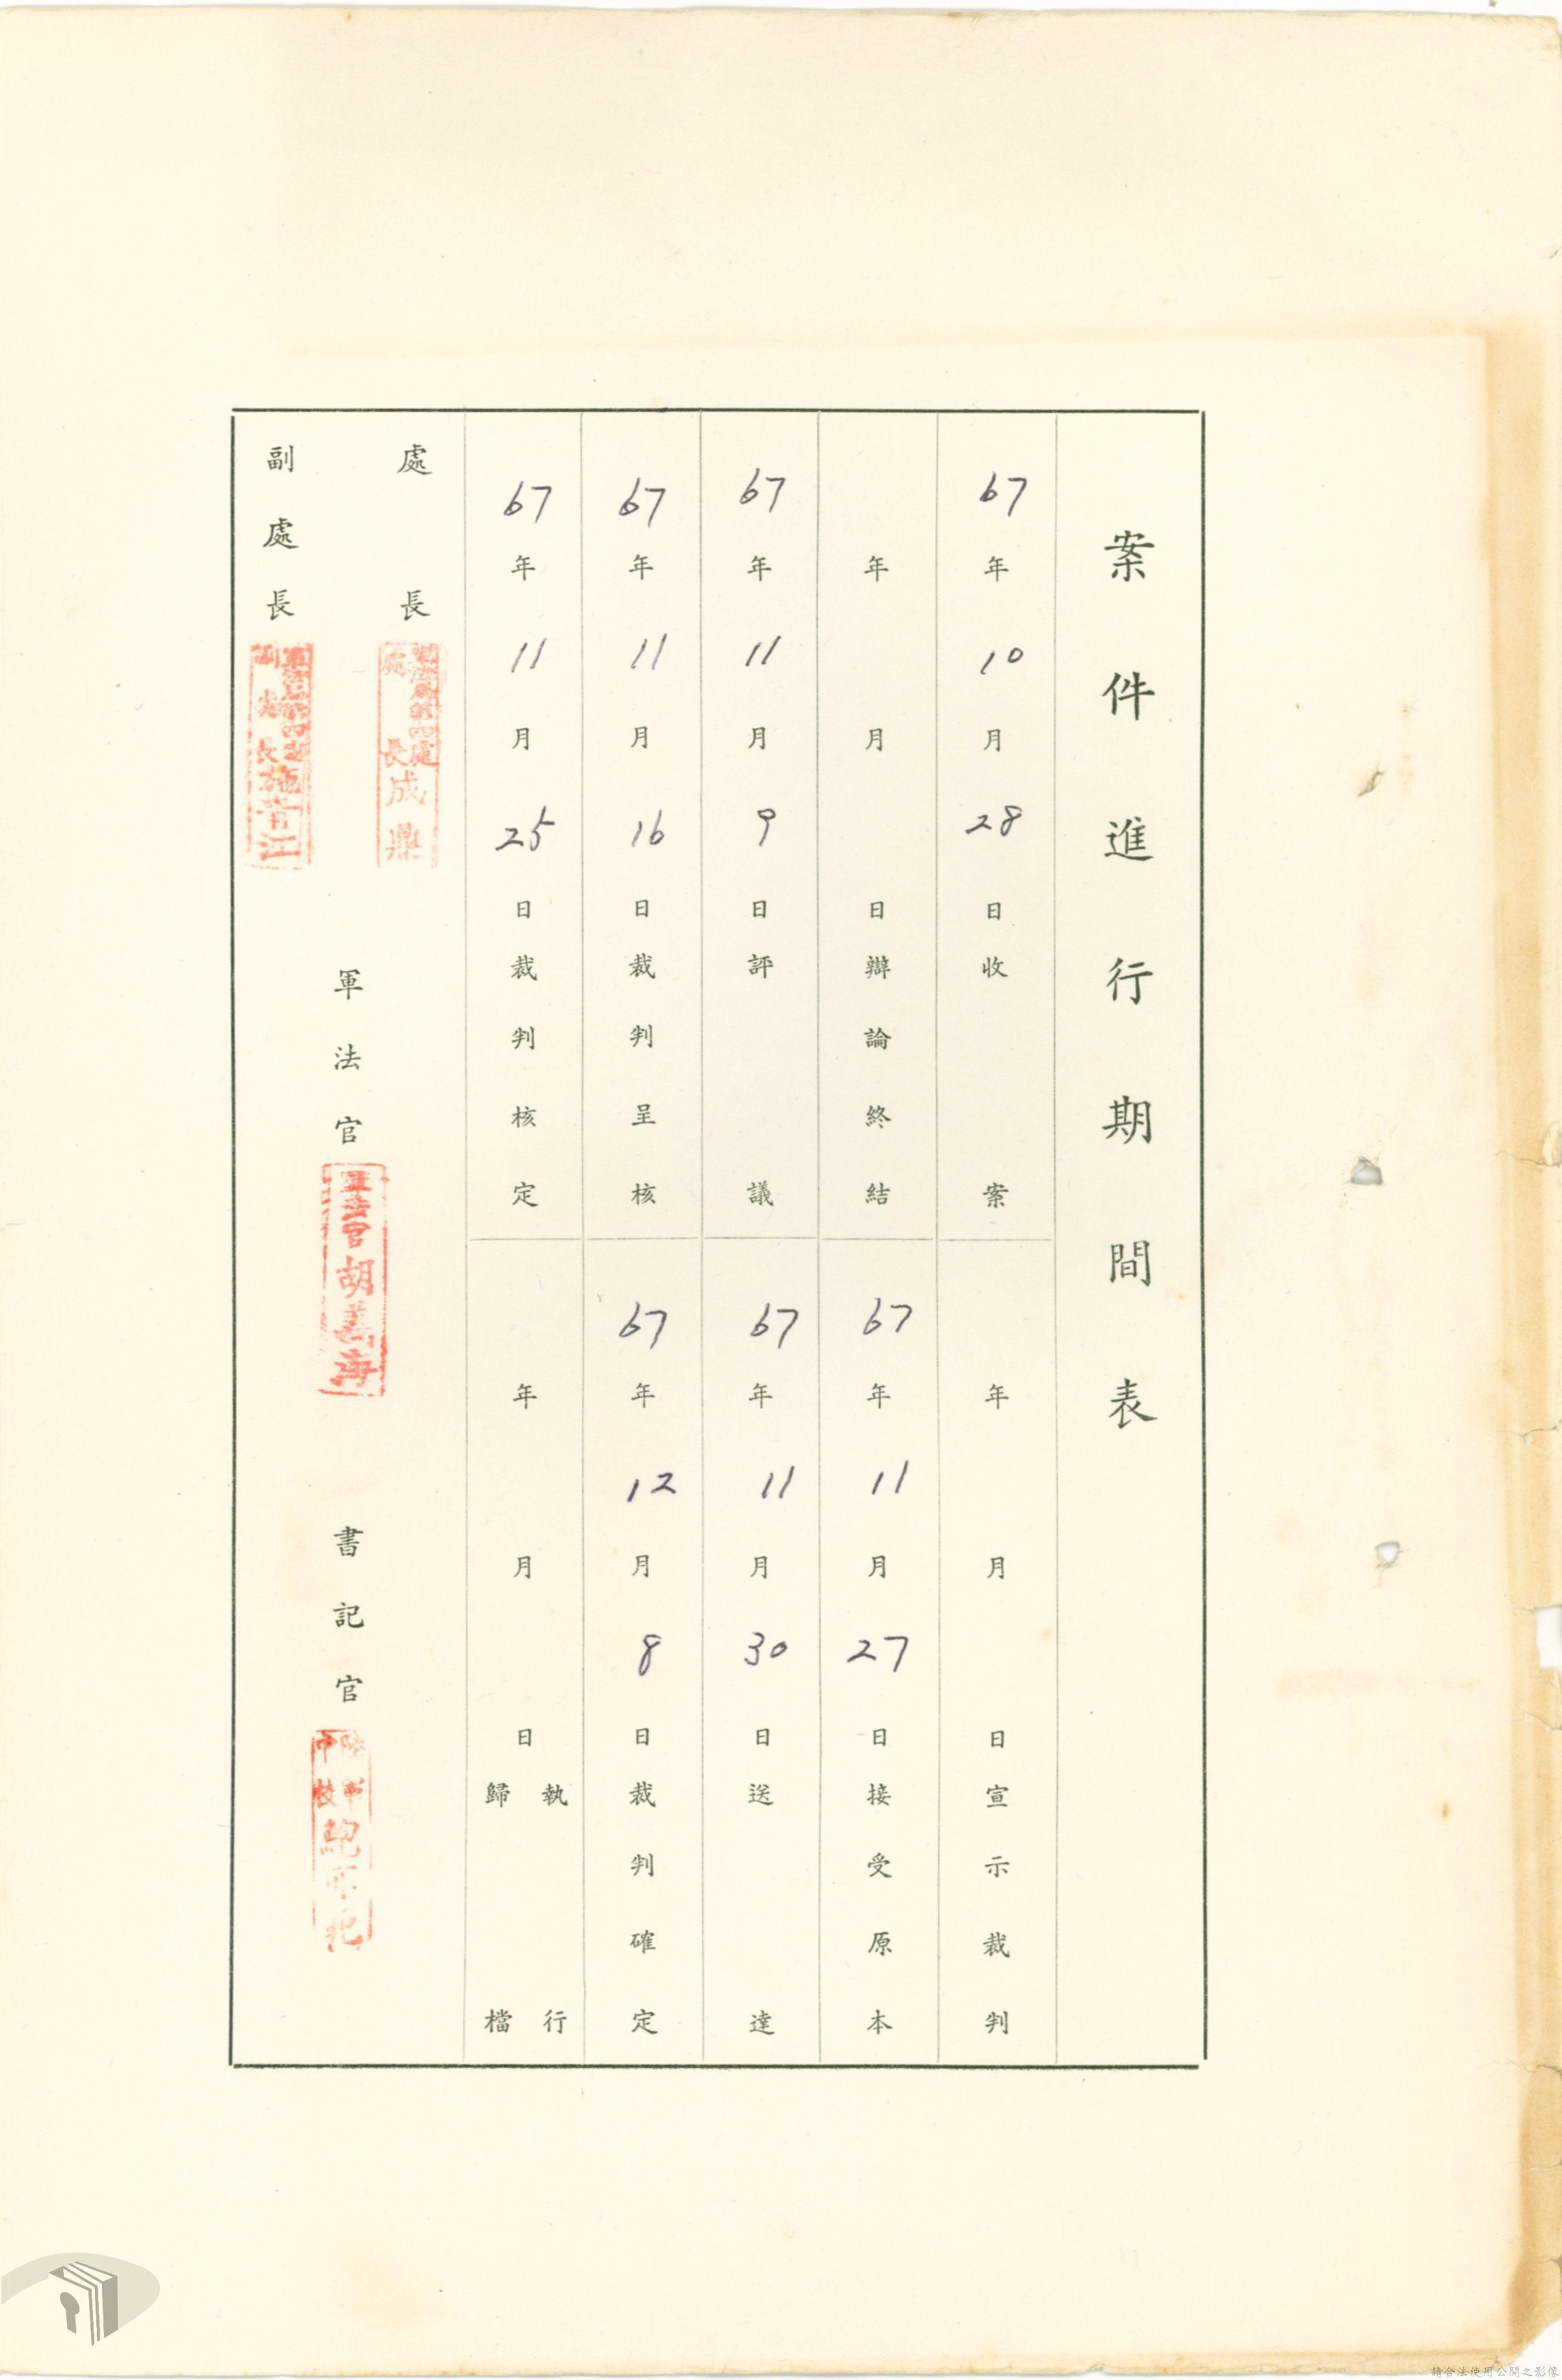 案件進行期間表
67年10月28日收案
年月日宣示裁判
年月日辯論終結
67年11月27日接受原本
67年11月9日評議
67年11月30日送達
67年11月16日裁判呈核
67年12月8日裁判確定
67年11月25日裁判核定
年月日執行歸檔
處長
軍法局第四處
處長成鼎
副處長
軍法局第四處
副處長施菁江
軍法官
軍法官胡
海
書記官
陸軍
中校
請合法使用公開之影像